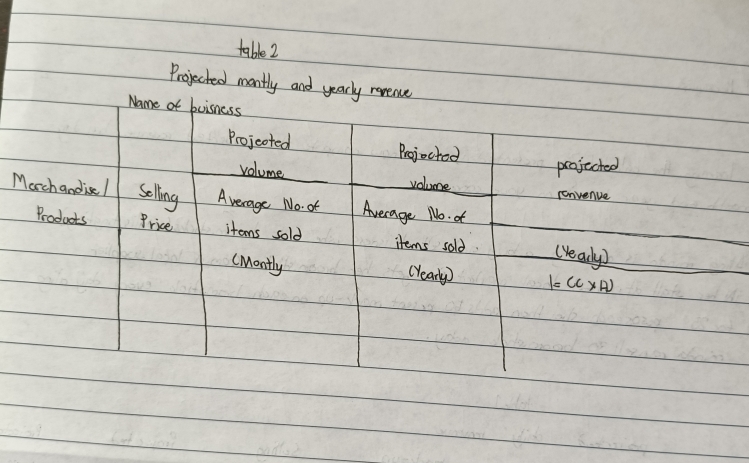 table 2
Projected montly and yearly revenue
Name of buisness
Projected
volume
Projected
volume
projected
renvenue
Merchandise/
Products
Selling
Price
Average No. of
items sold
(Montly
Average No. of
items sold.
(Yearly)
(Yearly)